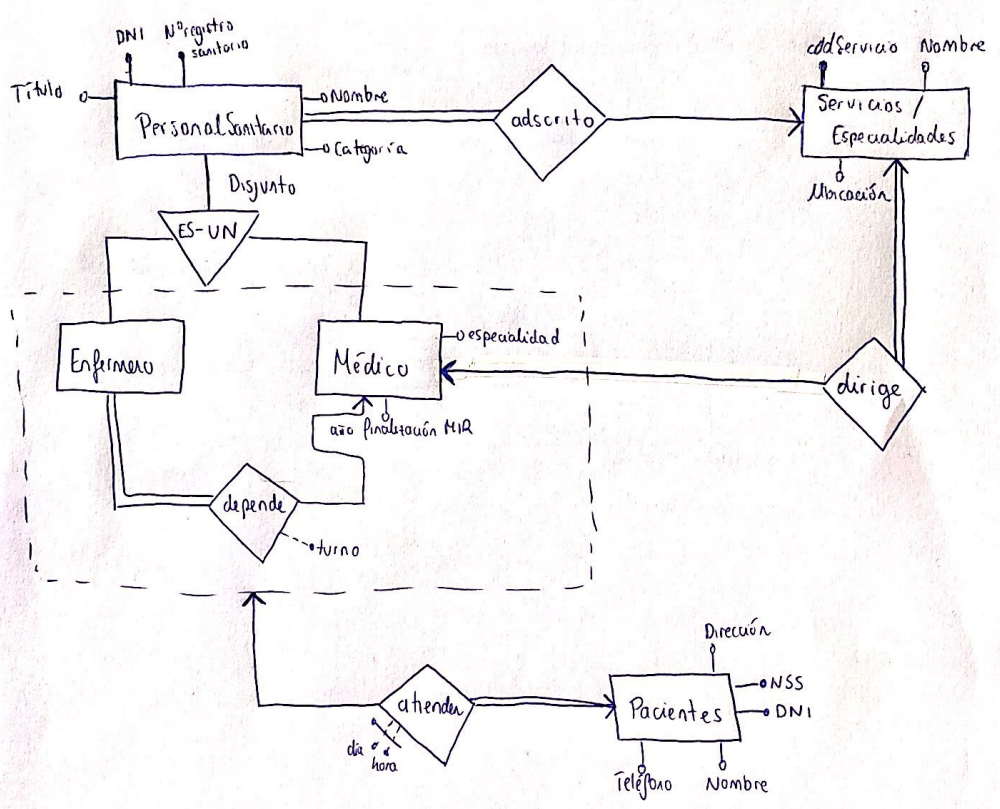 DNI
Nº registro
sanitario
Título
Nombre
PersonalSanitario
Categoría
adscrito
códServicio
Nombre
Servicios /
Especialidades
Ubicación
Disjunto
ES-UN
Enfermero
Médico
especialidad
año finalización MIR
dirige
depende
turno
Dirección
atender
día
hora
Pacientes
NSS
DNI
Teléfono
Nombre